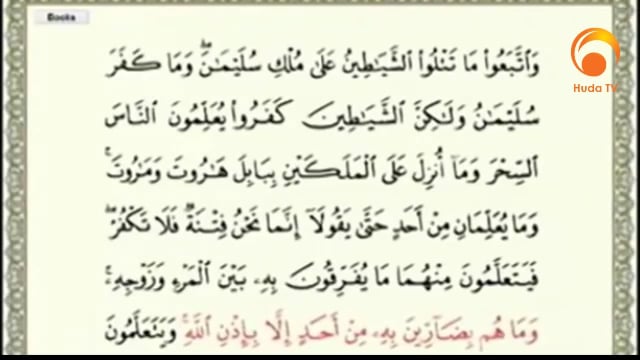 Books
Huda TV
وَٱتَّبَعُوا۟ مَا تَتْلُوا۟ ٱلشَّيَـٰطِينُ عَلَىٰ مُلْكِ سُلَيْمَـٰنَ ۖ وَمَا كَفَرَ
سُلَيْمَـٰنُ وَلَـٰكِنَّ ٱلشَّيَـٰطِينَ كَفَرُوا۟ يُعَلِّمُونَ ٱلنَّاسَ
ٱلسِّحْرَ وَمَآ أُنزِلَ عَلَى ٱلْمَلَكَيْنِ بِبَابِلَ هَـٰرُوتَ وَمَـٰرُوتَ ۚ
وَمَا يُعَلِّمَانِ مِنْ أَحَدٍ حَتَّىٰ يَقُولَآ إِنَّمَا نَحْنُ فِتْنَةٌ فَلَا تَكْفُرْ ۖ
فَيَتَعَلَّمُونَ مِنْهُمَا مَا يُفَرِّقُونَ بِهِۦ بَيْنَ ٱلْمَرْءِ وَزَوْجِهِۦ ۚ
وَمَا هُم بِضَآرِّينَ بِهِۦ مِنْ أَحَدٍ إِلَّا بِإِذْنِ ٱللَّهِ ۚ وَيَتَعَلَّمُونَ